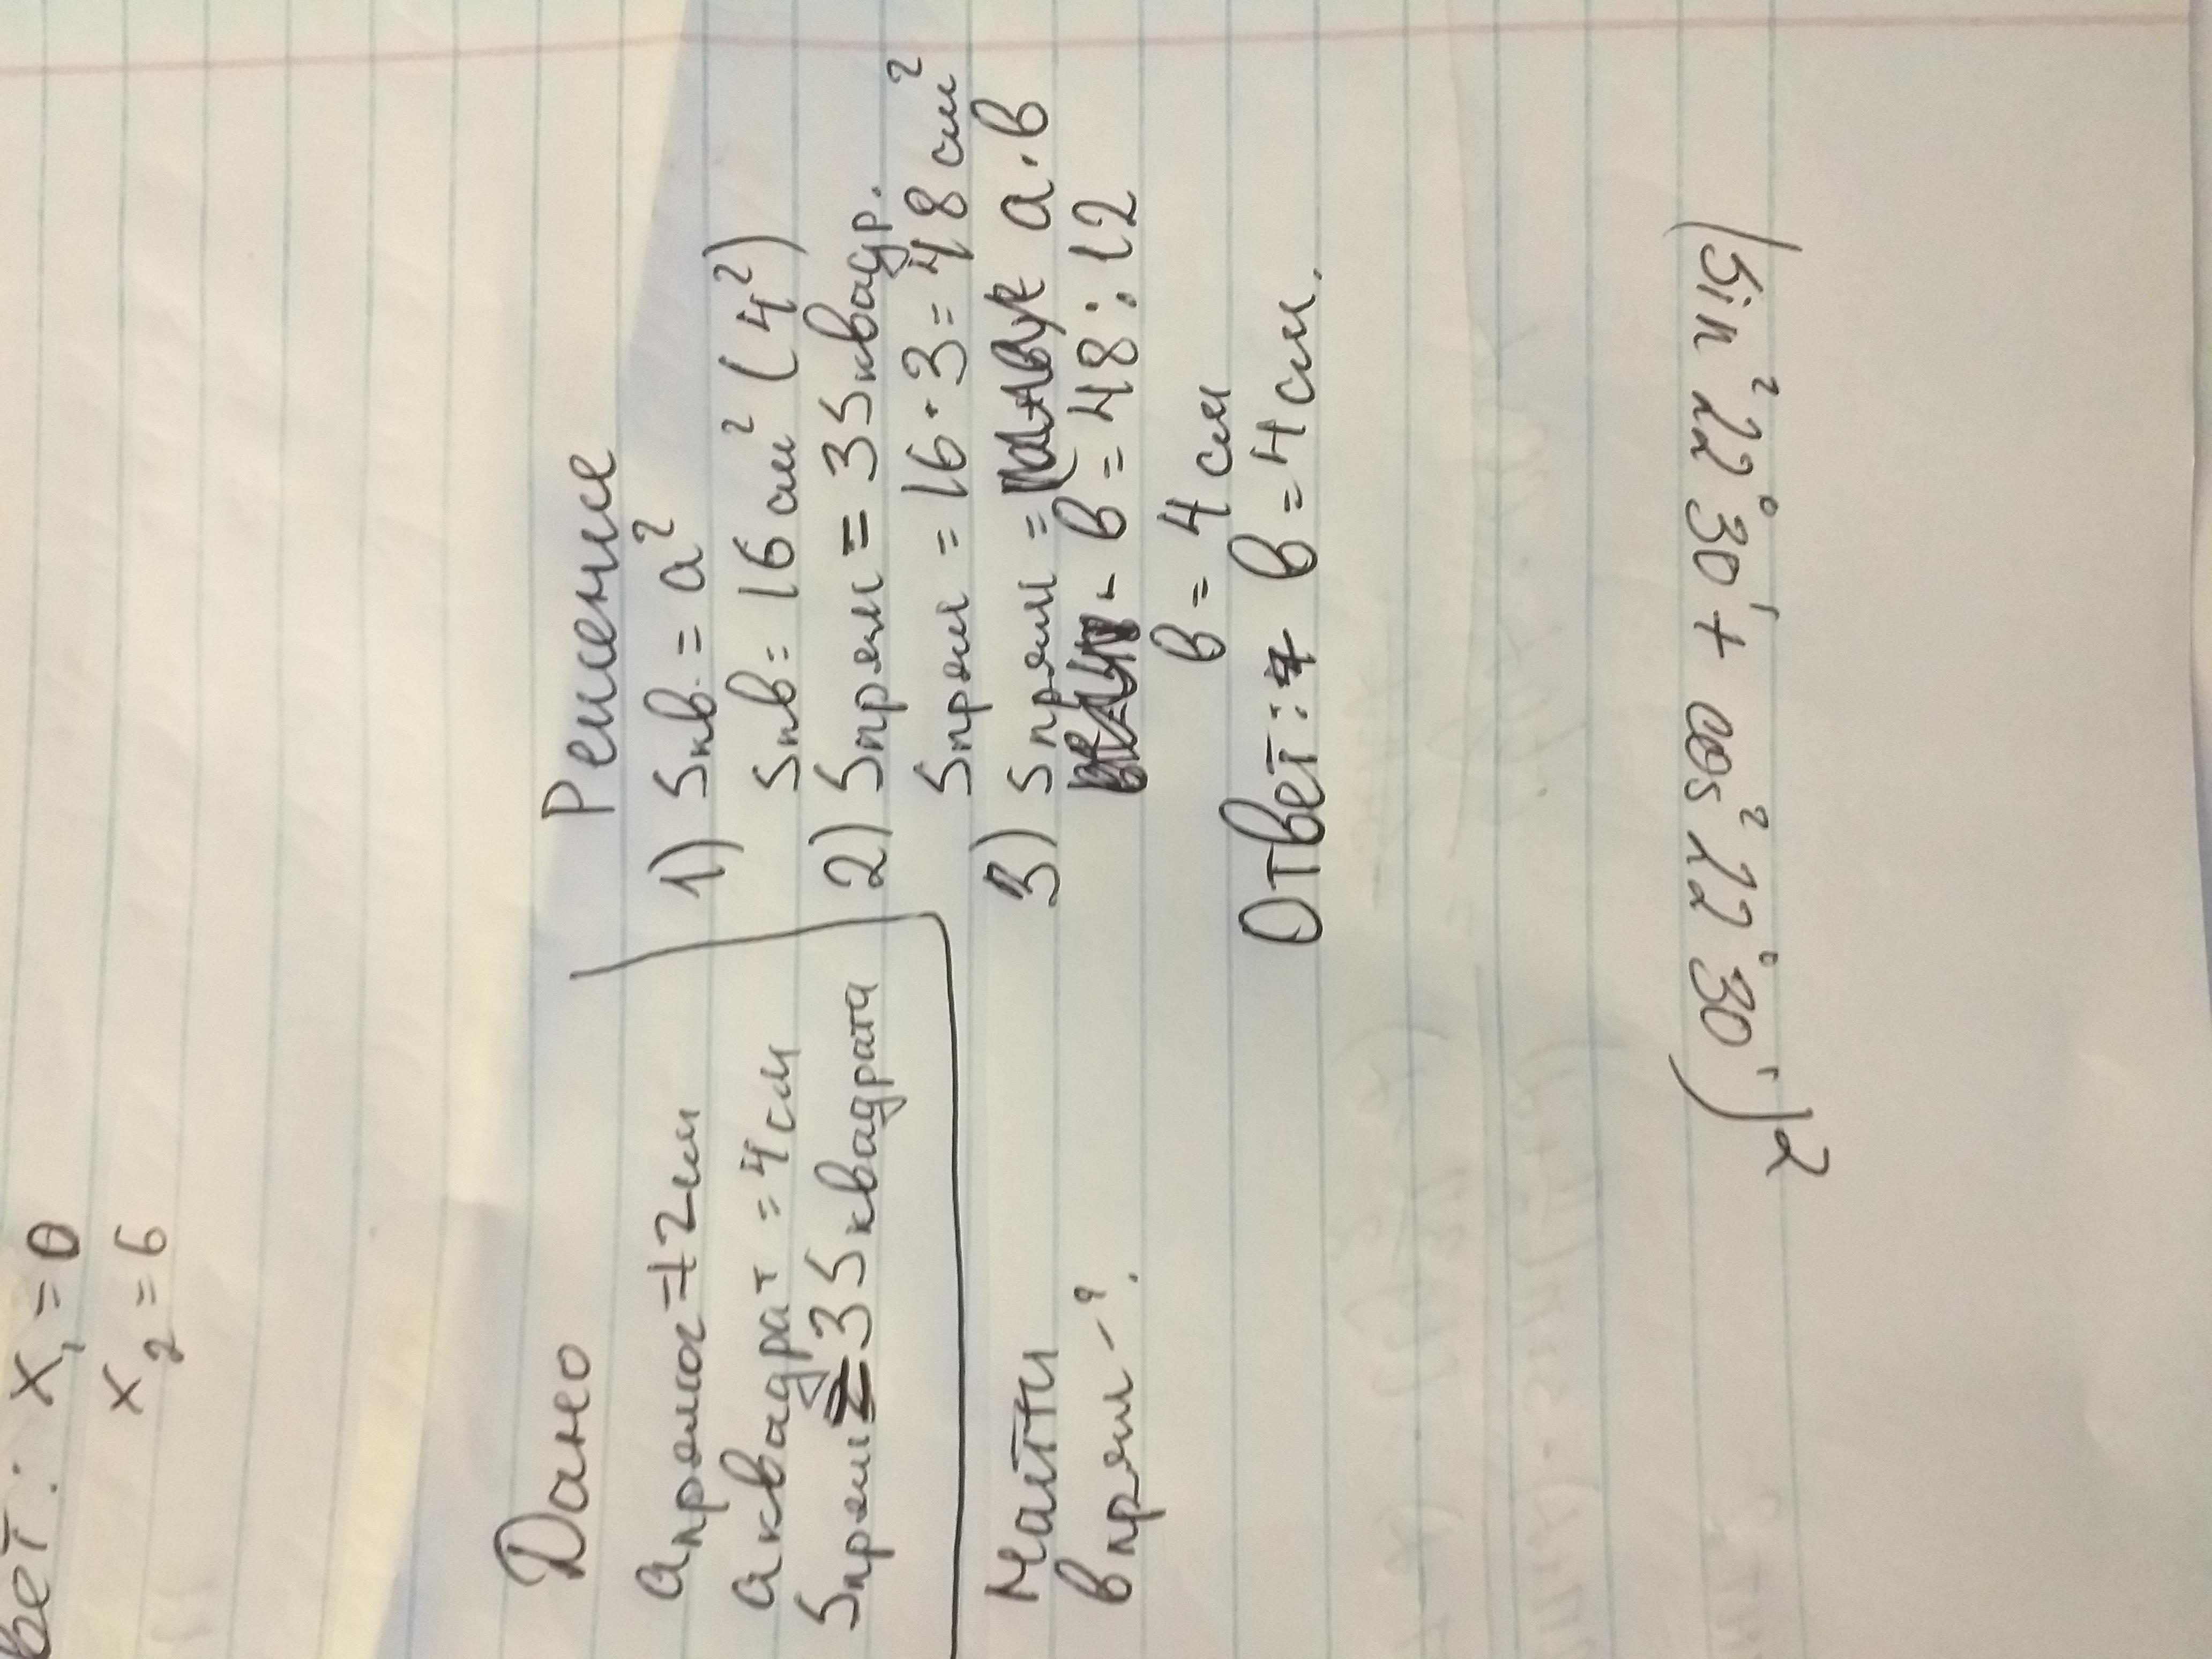 вет: x₁ = 0
x₂ = 6
Дано
a прямог = 12 см
a квадрат = 4 см
S прям = 3 S квадрата
Найти
в прям - ?
Решение
1) S кв. = a²
S кв = 16 см² (4²)
2) S прям = 3 S квадр.
S прям = 16 · 3 = 48 см²
3) S прям = a · в
в = 48 : 12
в = 4 см
Ответ: в = 4 см.
(sin² 22° 30' + cos² 22° 30')²